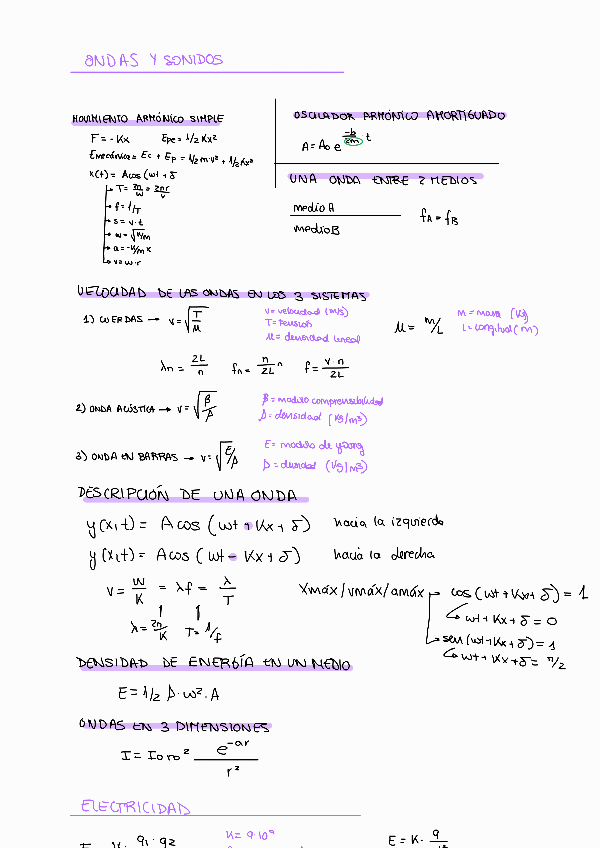 ONDAS Y SONIDOS
MOVIMIENTO ARMÓNICO SIMPLE
F = -Kx    Epe = 1/2 Kx²
Emecánica = Ec + Ep = 1/2 m·v² + 1/2 Kx²
x(t) = A cos (wt + δ
T = 2π/w = 2πr/v
f = 1/T
s = v·t
w = √K/m
a = -K/m x
v = w·r
OSCILADOR ARMÓNICO AMORTIGUADO
A = A₀ e^(-b/2m) t
UNA ONDA ENTRE 2 MEDIOS
medio A
medio B
fA = fB
VELOCIDAD DE LAS ONDAS EN LOS 3 SISTEMAS
1) CUERDAS → v = √T/μ
V = velocidad (m/s)
T = tensión
μ = densidad lineal
μ = m/L
M = masa (Kg)
L = longitud (m)
λn = 2L/n    fn = n/2L    f = v·n/2L
2) ONDA ACÚSTICA → v = √β/ρ
β = modulo comprensibilidad
ρ = densidad (Kg/m³)
3) ONDA EN BARRAS → v = √E/ρ
E = modulo de young
ρ = (Kg/m³)
DESCRIPCIÓN DE UNA ONDA
y(x,t) = A cos (wt + Kx + δ) hacia la izquierda
y(x,t) = A cos (wt - Kx + δ) hacia la derecha
v = w/K = λf = λ/T
λ = 2π/K    T = 1/f
Xmáx/vmáx/amáx
cos (wt + Kx + δ) = 1
wt + Kx + δ = 0
sen (wt + Kx + δ) = 1
wt + Kx + δ = π/2
DENSIDAD DE ENERGÍA EN UN MEDIO
E = 1/2 ρ·w²·A
ONDAS EN 3 DIMENSIONES
I = I₀ r₀² e^-ar / r²
ELECTRICIDAD
q1·q2
K = 9·10⁹
E = K· q